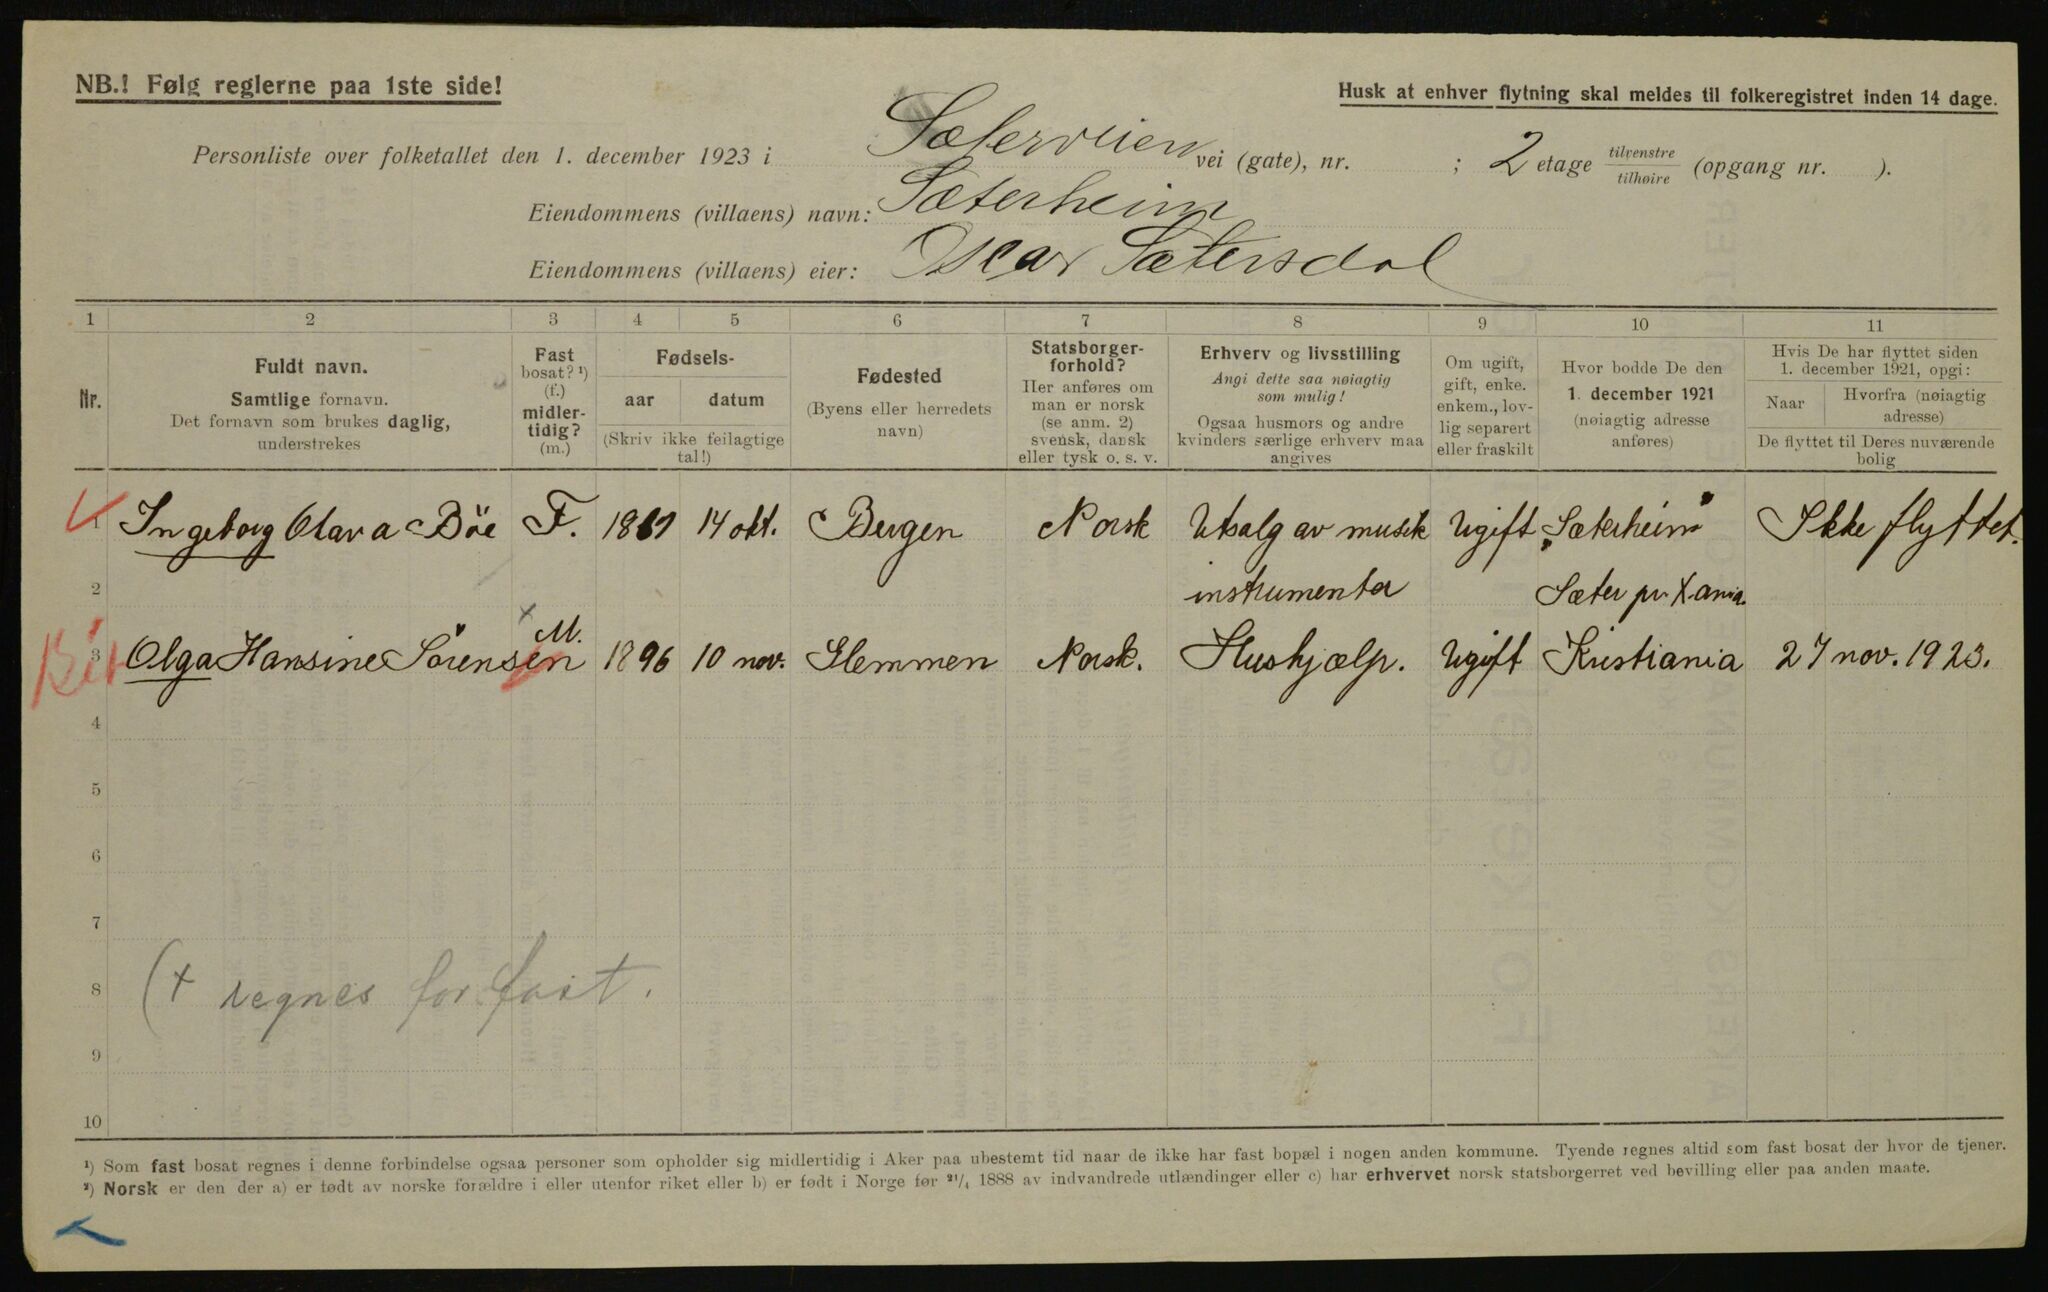 NB.! Følg reglerne paa 1ste side!
Husk at enhver flytning skal meldes til folkeregistret inden 14 dage.
Personliste over folketallet den 1. december 1923 i Sæterveien vei (gate), nr. ; 2 etage tilvenstre tilhøire (opgang nr. ).
Eiendommens (villaens) navn: Sæterheim
Eiendommens (villaens) eier: Oscar Sætersdal
1 2 3 4 5 6 7 8 9 10 11
Nr.
Fuldt navn.
Samtlige fornavn.
Det fornavn som brukes daglig,
understrekes
Fast
bosat? ¹)
(f.)
midler-
tidig?
(m.)
Fødsels-
aar datum
(Skriv ikke feilagtige
tal!)
Fødested
(Byens eller herredets
navn)
Statsborger-
forhold?
Her anføres om
man er norsk
(se anm. 2)
svensk, dansk
eller tysk o. s. v.
Erhverv og livsstilling
Angi dette saa nøiagtig
som mulig!
Ogsaa husmors og andre
kvinders særlige erhverv maa
angives
Om ugift,
gift, enke.
enkem., lov-
lig separert
eller fraskilt
Hvor bodde De den
1. december 1921
(nøiagtig adresse
anføres)
Hvis De har flyttet siden
1. december 1921, opgi:
Naar
Hvorfra (nøiagtig
adresse)
De flyttet til Deres nuværende
bolig
1 Ingeborg Olava Böe F. 14 okt. Bergen Norsk Utsalg av musik Ugift "Sæterheim" Ikke flyttet.
2 instrumenter Sæter pr. Xania.
3 Olga Hansine Sörensen M. 1896 10 nov. Glemmen Norsk. Hushjælp. Ugift Kristiania 27 nov. 1923.
4
5
6
7
8 (+ regnes for fast.
9
10
¹) Som fast bosat regnes i denne forbindelse ogsaa personer som opholder sig midlertidig i Aker paa ubestemt tid naar de ikke har fast bopæl i nogen anden kommune. Tyende regnes altid som fast bosat der hvor de tjener.
²) Norsk er den der a) er født av norske forældre i eller utenfor riket eller b) er født i Norge før ²¹/₄ 1888 av indvandrede utlændinger eller c) har erhvervet norsk statsborgerret ved bevilling eller paa anden maate.